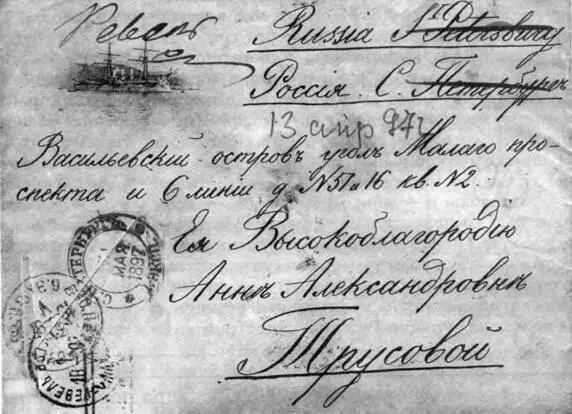 Ревель
Russia St Petersburg
Россія. С. Петербургъ
13 апр 97 г
Васильевскій островъ уголъ Малаго про-
спекта и 6 линіи д. N 51 и 16 кв. N 2.
Ея Высокоблагородію
Аннѣ Александровнѣ
Трусовой
МАЯ
1897
РЕВЕЛЬ